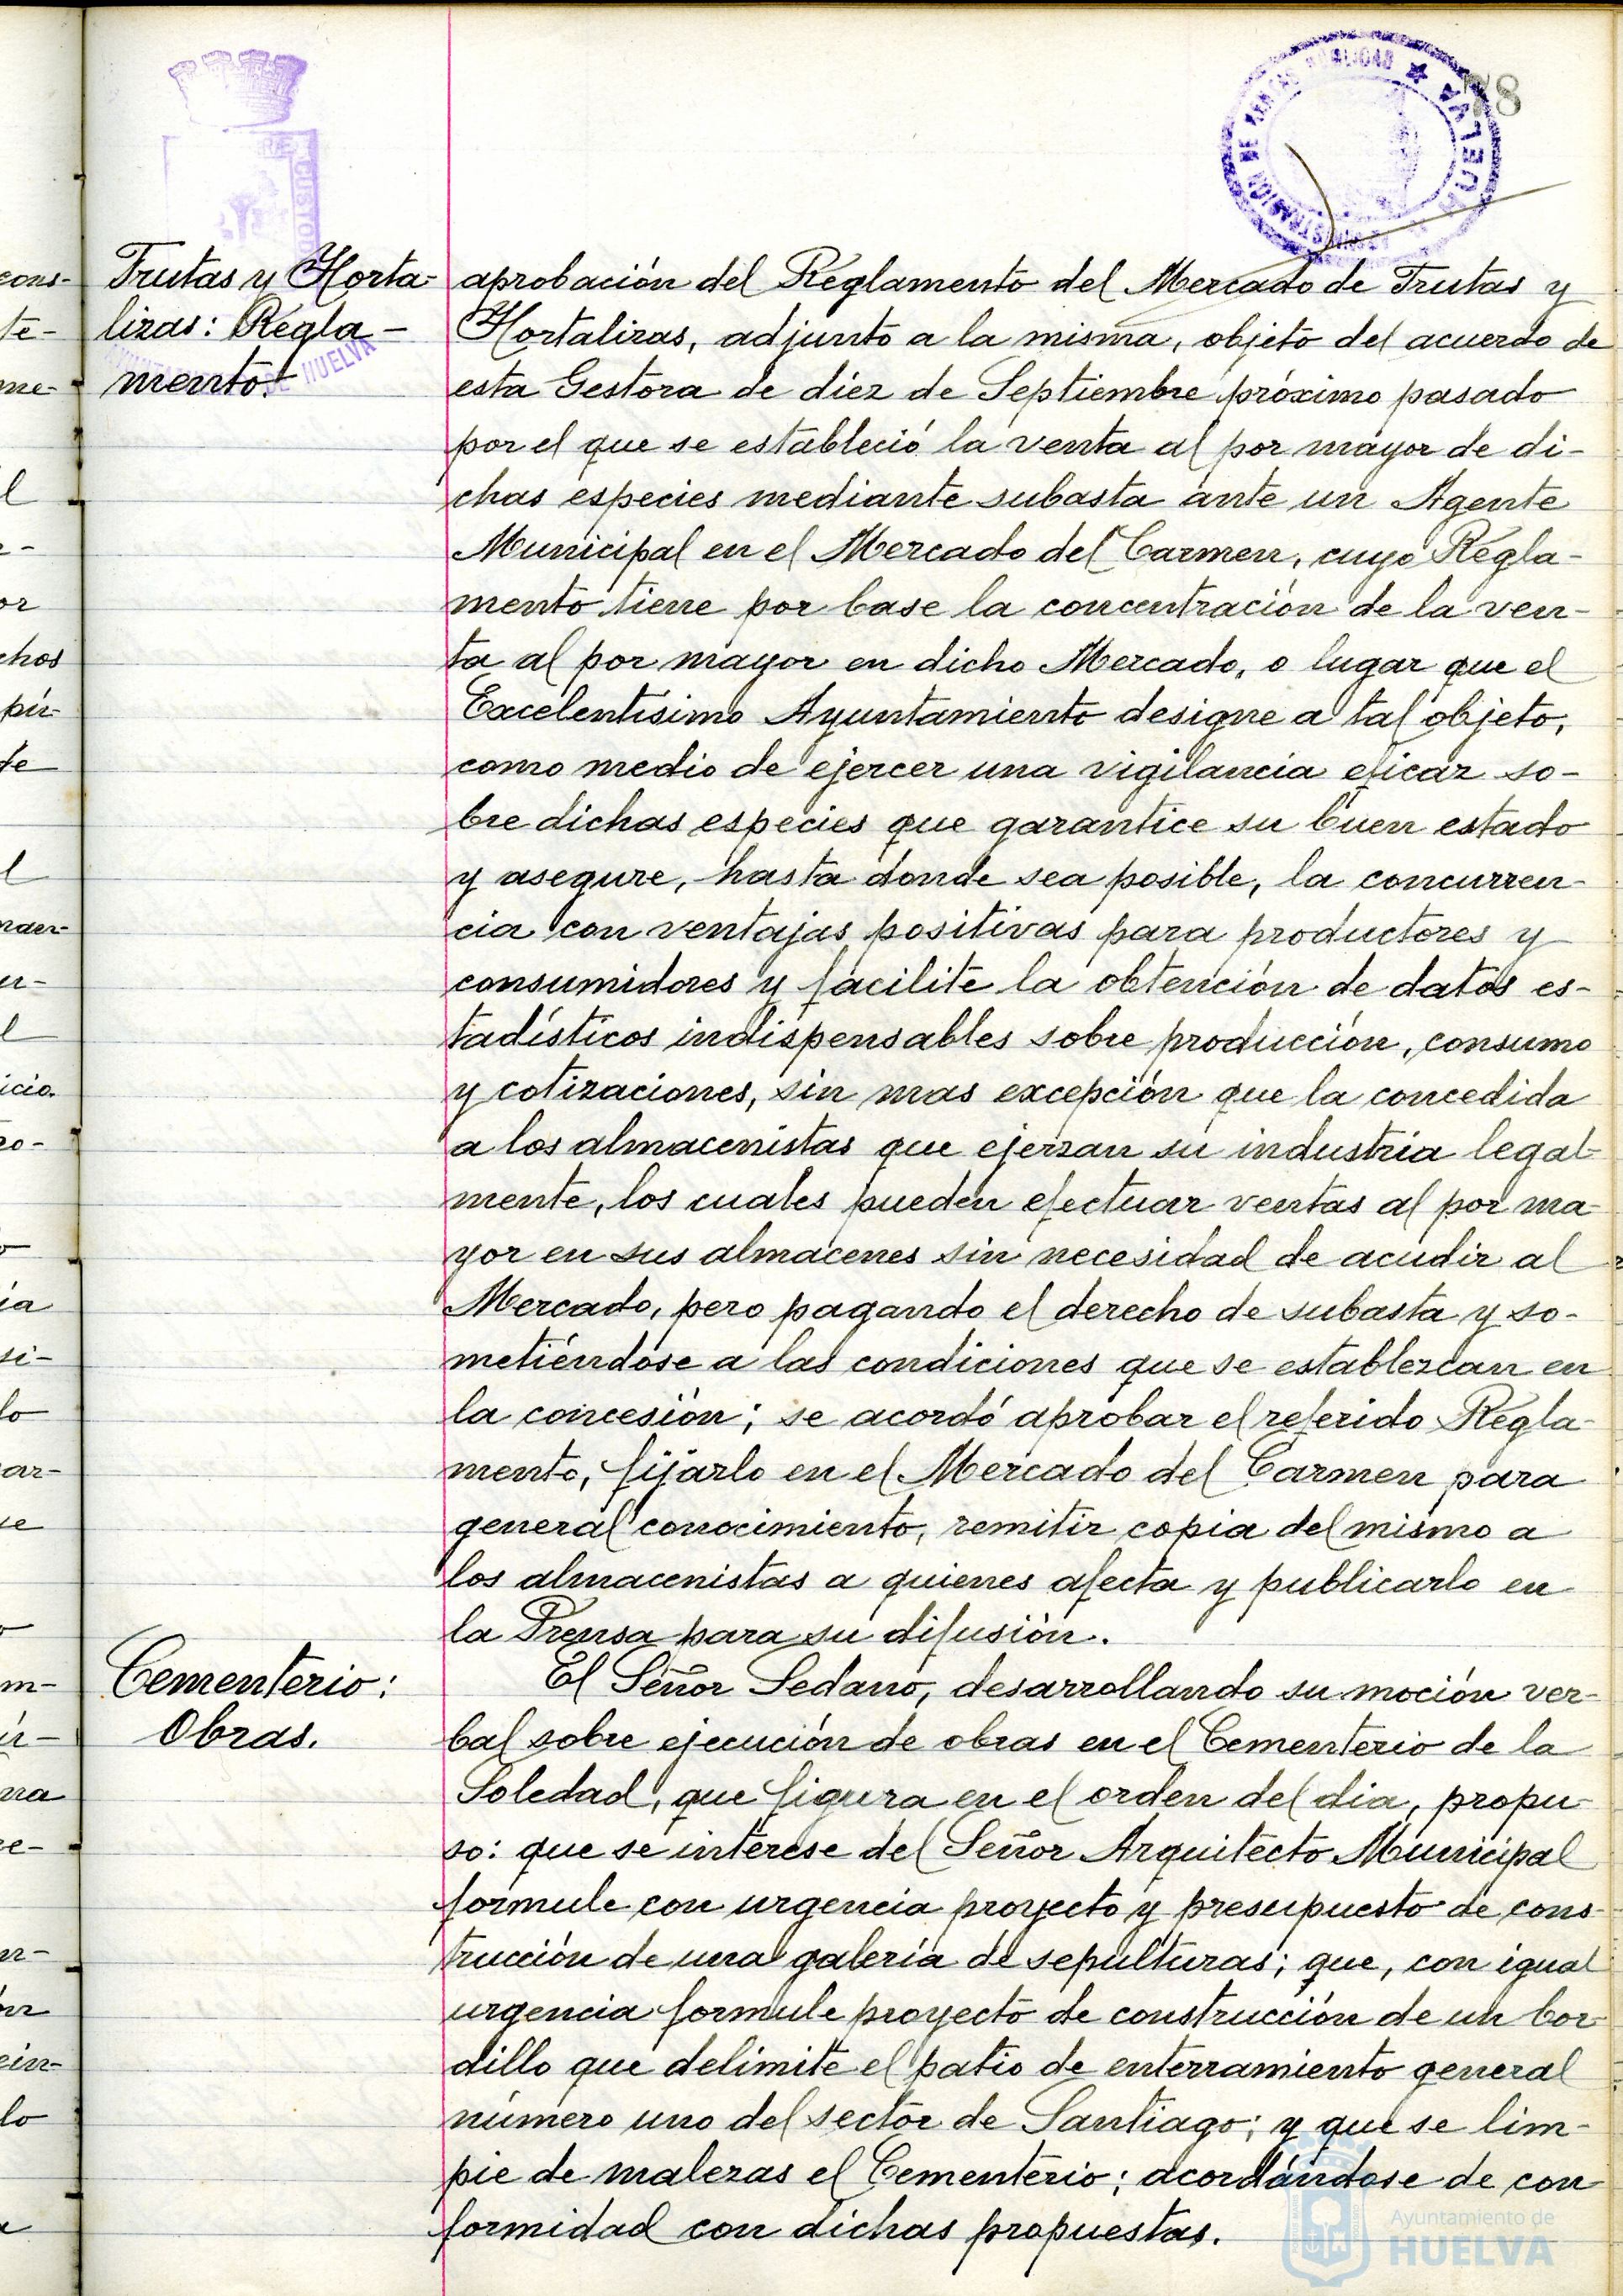 78
ADMINISTRACION DE RENTAS PUBLICAS ★ HUELVA
CUSTOD
HUELVA
Frutas y Horta-
lizas: Regla-
mento.
aprobación del Reglamento del Mercado de Frutas y
Hortalizas, adjunto a la misma, objeto del acuerdo de
esta Gestora de diez de Septiembre próximo pasado
por el que se estableció la venta al por mayor de di-
chas especies mediante subasta ante un Agente
Municipal en el Mercado del Carmen, cuyo Regla-
mento tiene por base la concentración de la ven-
ta al por mayor en dicho Mercado, o lugar que el
Excelentisimo Ayuntamiento designe a tal objeto,
como medio de ejercer una vigilancia eficaz so-
bre dichas especies que garantice su buen estado
y asegure, hasta donde sea posible, la concurren-
cia con ventajas positivas para productores y
consumidores y facilite la obtención de datos es-
tadísticos indispensables sobre producción, consumo
y cotizaciones, sin mas excepción que la concedida
a los almacenistas que ejerzan su industria legal-
mente, los cuales pueden efectuar ventas al por ma-
yor en sus almacenes sin necesidad de acudir al
Mercado, pero pagando el derecho de subasta y so-
metiéndose a las condiciones que se establezcan en
la concesión; se acordó aprobar el referido Regla-
mento, fijarlo en el Mercado del Carmen para
general conocimiento, remitir copia del mismo a
los almacenistas a quienes afecta y publicarlo en
la Prensa para su difusión.
Cementerio:
Obras.
El Señor Sedano, desarrollando su moción ver-
bal sobre ejecución de obras en el Cementerio de la
Soledad, que figura en el orden del dia, propu-
so: que se interese del Señor Arquitecto Municipal
formule con urgencia proyecto y presupuesto de cons-
trucción de una galería de sepulturas; que, con igual
urgencia formule proyecto de construcción de un bor-
dillo que delimite el patio de enterramiento general
número uno del sector de Santiago; y que se lim-
pie de malezas el Cementerio; acordándose de con-
formidad con dichas propuestas.
Ayuntamiento de
HUELVA